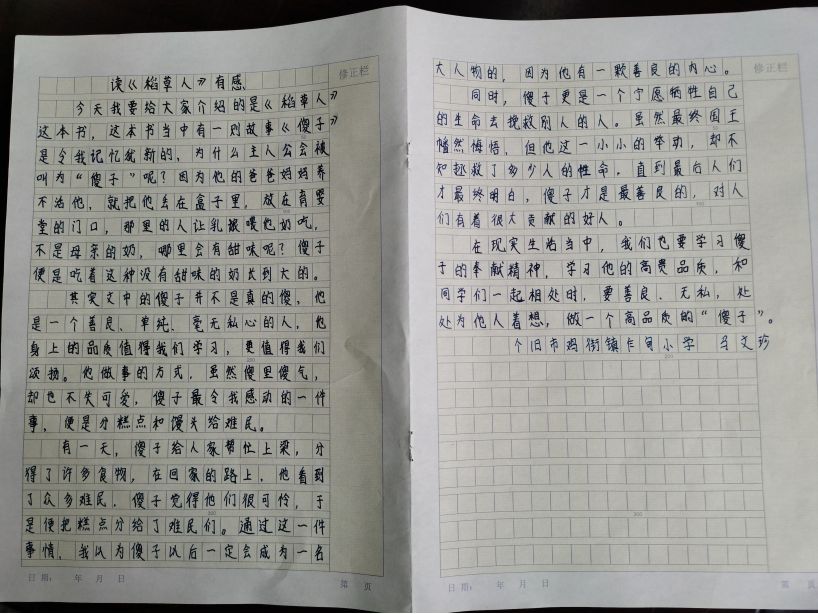 读《稻草人》有感
修正栏
今天我要给大家介绍的是《稻草人》
这本书，这本书当中有一则故事《傻子》
是令我记忆犹新的，为什么主人公会被
叫为“傻子”呢？因为他的爸爸妈妈养
不活他，就把他丢在盒子里，放在育婴
堂的门口，那里的人让乳娘喂他奶吃，
不是母亲的奶，哪里会有甜味呢？傻子
便是吃着这种没有甜味的奶长到大的。
其实文中的傻子并不是真的傻，他
是一个善良、单纯、毫无私心的人，他
身上的品质值得我们学习，更值得我们
颂扬。他做事的方式，虽然傻里傻气，
却也不失可爱，傻子最令我感动的一件
事，便是分糕点和馒头给难民。
有一天，傻子给人家帮忙上梁，分
得了许多食物，在回家的路上，他看到
了众多难民，傻子觉得他们很可怜，于
是便把糕点分给了难民们。通过这一件
事情，我以为傻子以后一定会成为一名
日期： 年 月 日
第 页
修正栏
大人物的，因为他有一颗善良的内心。
同时，傻子更是一个宁愿牺牲自己
的生命去挽救别人的人。虽然最终国王
幡然悔悟，但他这一小小的举动，却不
知拯救了多少人的性命，直到最后人们
才最终明白，傻子才是最善良的，对人
们有着很大贡献的好人。
在现实生活当中，我们也要学习傻
子的奉献精神，学习他的高贵品质，和
同学们一起相处时，要善良、无私，处
处为他人着想，做一个高品质的“傻子”。
个旧市鸡街镇乍甸小学 马文珍
日期： 年 月 日
第 页